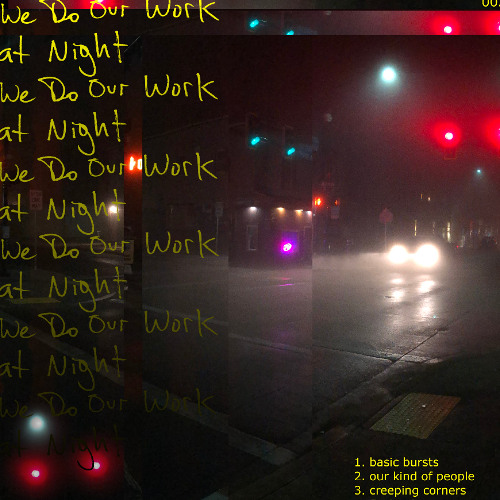 00
We Do Our Work
at Night
We Do Our Work
at Night
We Do Our Work
at Night
We Do Our Work
at Night
We Do Our Work
at Night
We Do Our Work
at Night
1. basic bursts
2. our kind of people
3. creeping corners